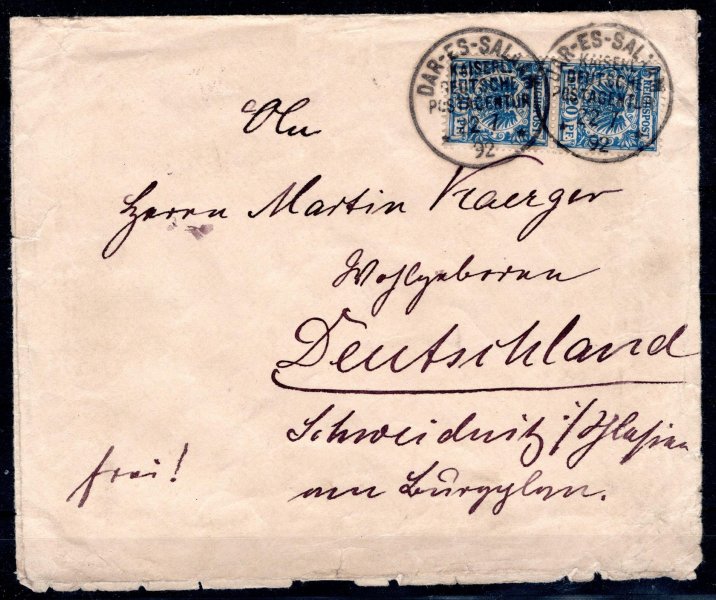 DAR-ES-SALAAM
KAISERL.
DEUTSCHE
POSTAGENTUR
22 7
92
DAR-ES-SALAAM
KAISERL.
DEUTSCHE
POSTAGENTUR
22 7
92
REICHSPOST
20 PF
An
Herrn Martin Kaerger
Wohlgeboren
Deutschland
Schweidnitz i/Schlesien
am Burgplan.
frei!